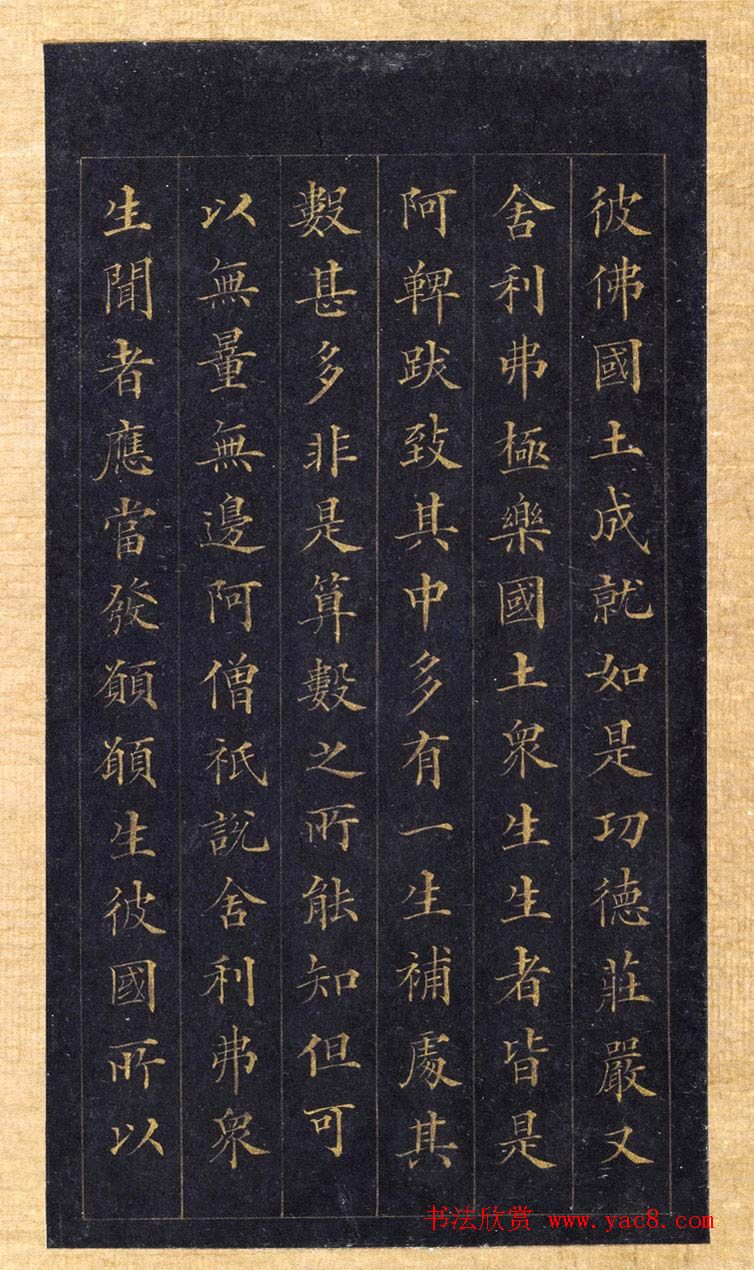 彼佛國土成就如是功德莊嚴又
舍利弗極樂國土眾生生者皆是
阿鞞跋致其中多有一生補處其
數甚多非是算數之所能知但可
以無量無邊阿僧祇說舍利弗眾
生聞者應當發願願生彼國所以
书法欣赏 www.yac8.com